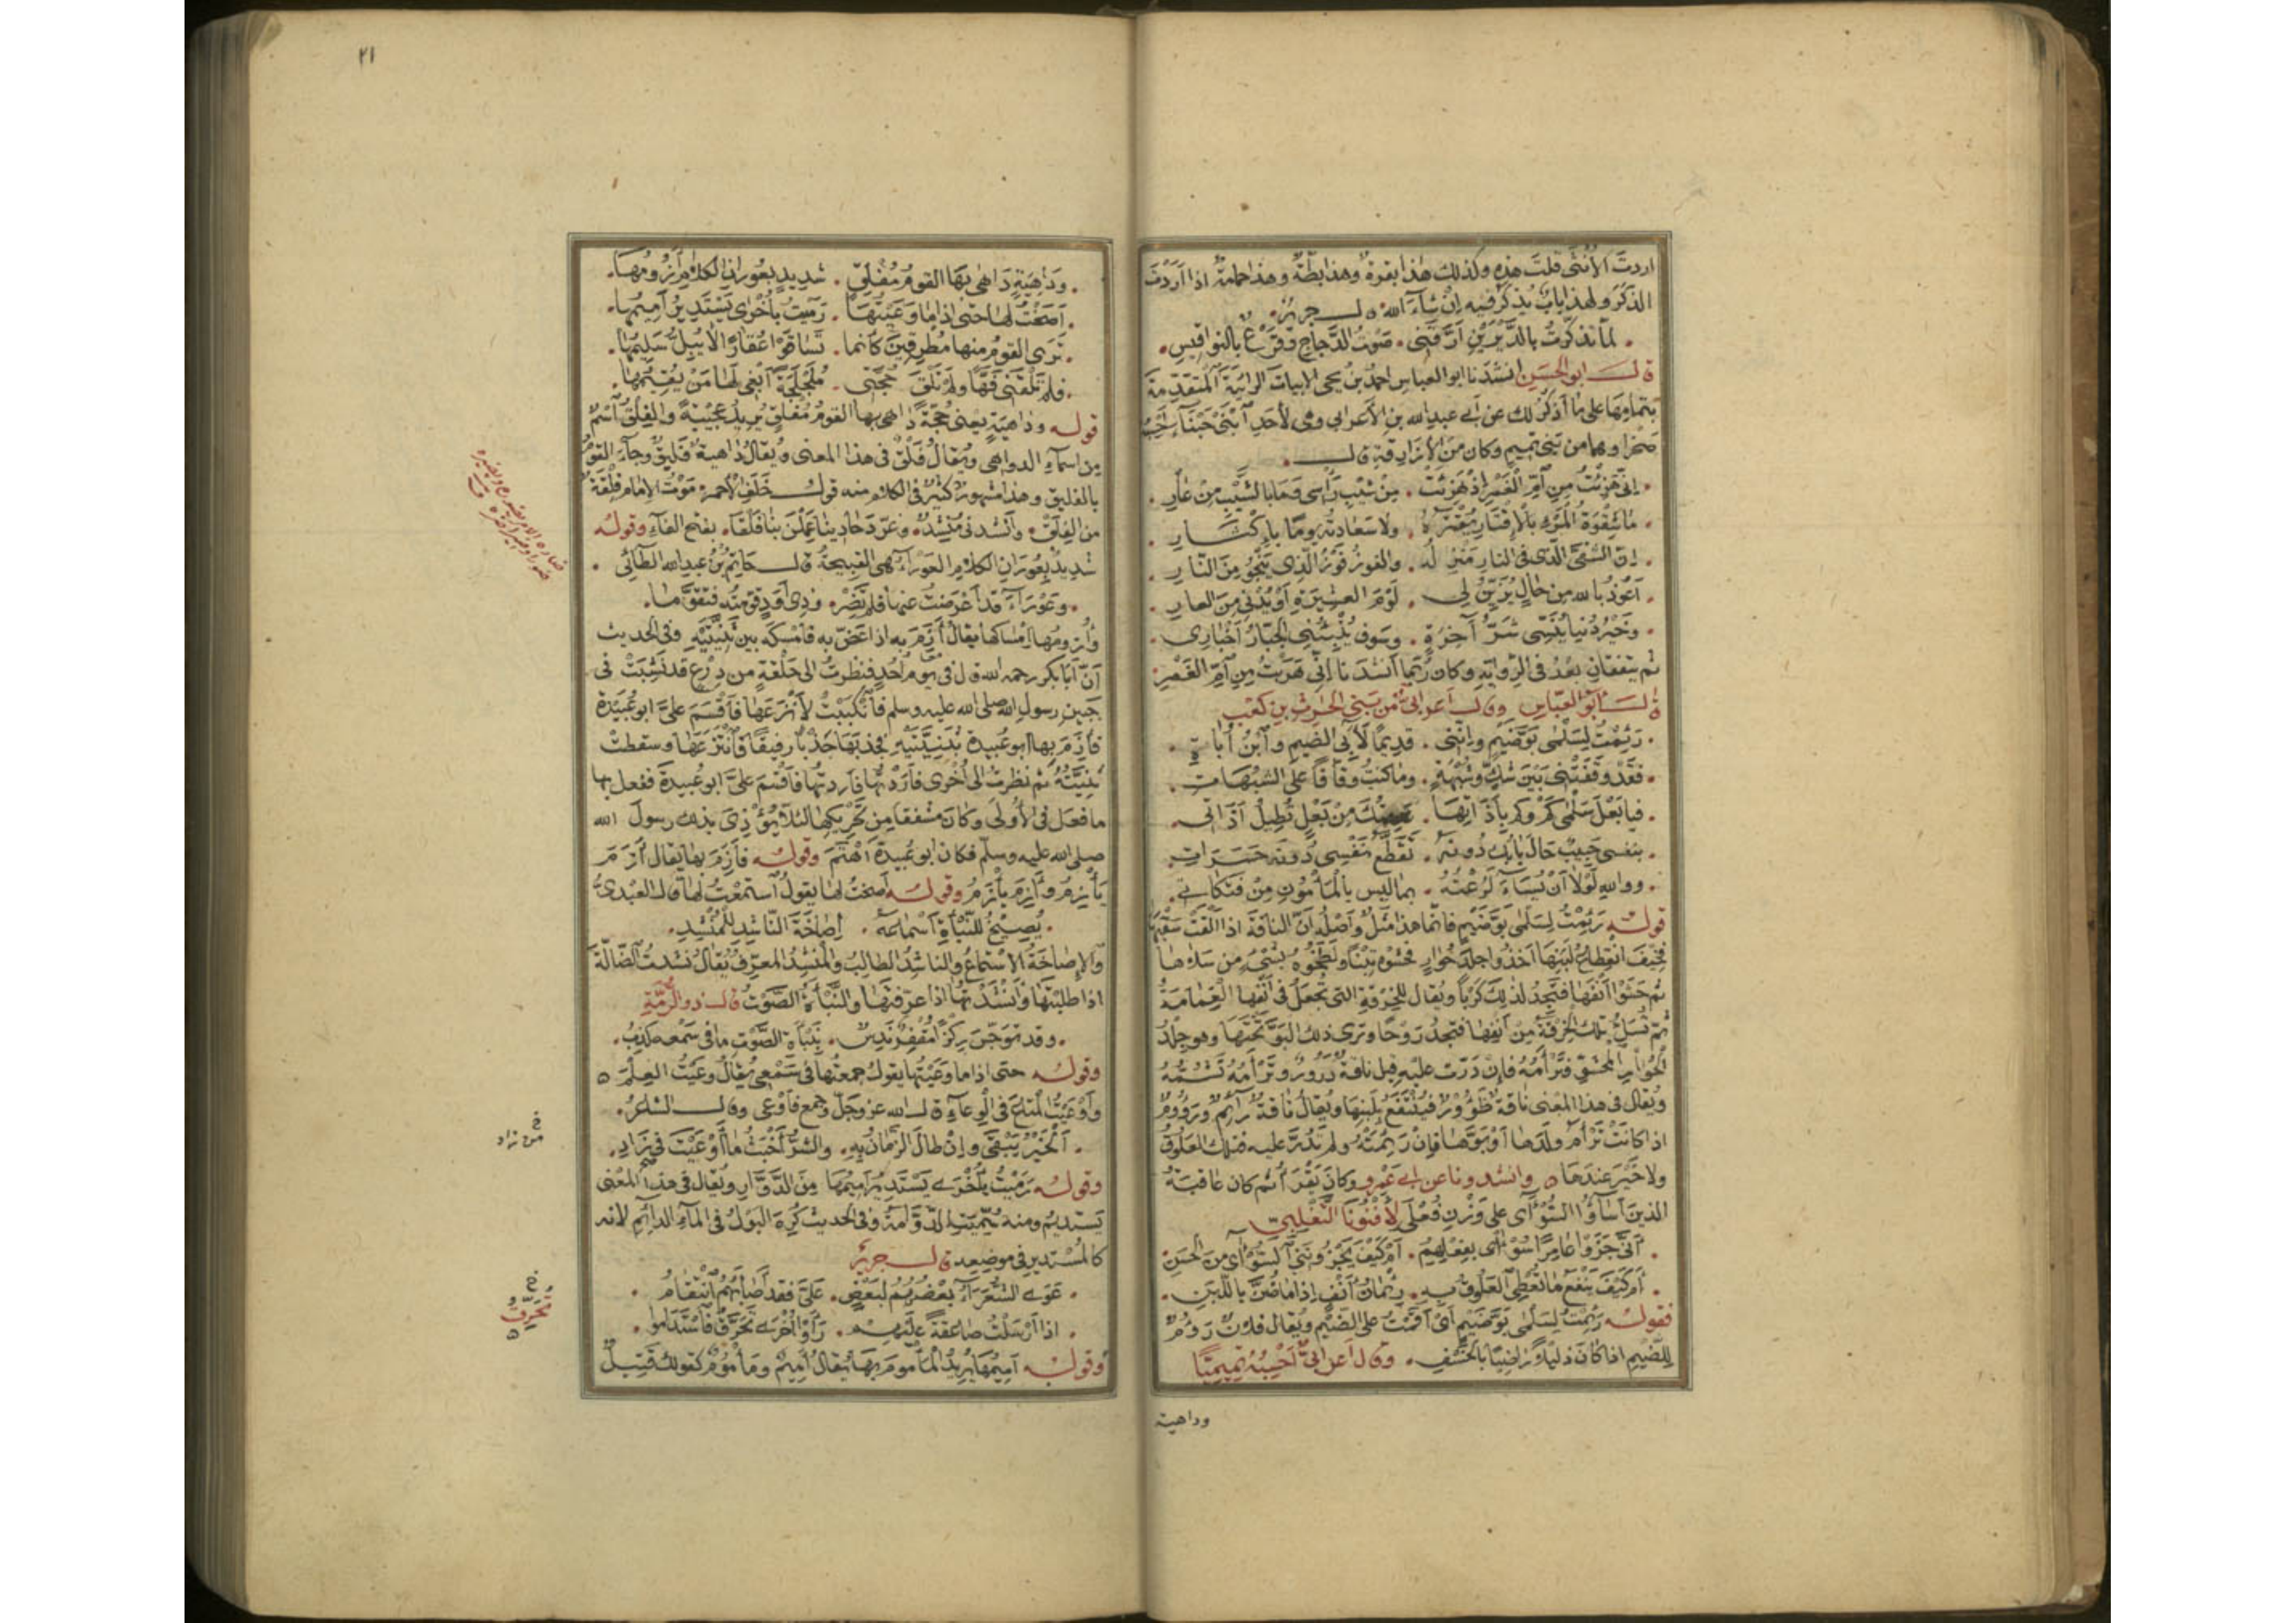 اردتَ الأنثى قلتَ هذه وكذلك هذا بقرة وهذا بطّة وهذا حمامة اذا اردتَ
الذكر ولهذا بابٌ يُذكر فيه إن شاء الله ه قال جرير
لما تذكرتُ بالديرين ارّقني . صوت الدجاج وقرعٌ بالنواقيس .
قال ابو الحسن انشدنا ابو العباس احمد بن يحيى الابيات الرائية المتقدمة
بتمامها على ما اذكر لك عن ابي عبد الله بن الاعرابي وهي لأحد ابني حبناء احسبه
صخرا وهما من بني تميم وكان من الأزارقة قال .
إني هزئتُ من ام الغمر إذ هزئت . من شيب رأسي وما بالشيب من عار .
ما شقوة المرء بالإقتار يقتره . ولا سعادته يوما بإكثار .
إن الشقي الذي في النار منزله . والفوز فوز الذي ينجو من النار .
اعوذ بالله من حال يزين لي . لوم العشيرة او يدني من العار .
وخير دنيا ينسي شر آخرة . وسوف ينبئني الجبار اخباري .
ثم يتفقان بعد في الرواية وكان ربما انشدنا إني هزئت من ام الغمر
قال ابو العباس وقال اعرابي من بني الحرث بن كعب
رئمت لسلمى بوّ ضيم وإنني . قديما لآبي الضيم وابن أباة .
فقد وقفتني بين شك وشبهة . وما كنت وقافا على الشبهات .
فيا بعل سلمى كم وكم بأذاتها . عدمتك من بعل تطيل اذاتي .
بنفسي حبيب حال بابك دونه . تقطع نفسي دونه حسرات .
ووالله لولا ان تساء لرعته . بما ليس بالمأمون من فتكاتي .
قوله رئمت لسلمى بوّ ضيم فانما هذا مثل واصله ان الناقة اذا القت سقبها
فخيف انقطاع لبنها اخذوا جلد حوار فحشوه تبنا ولطخوه بشيء من سلاها
ثم حشوا انفها فتجد لذلك كربا ويقال للخرقة التي تجعل في انفها الغمامة
ثم تسل تلك الخرقة من انفها فتجد روحا وترى ذلك البو تحتها وهو جلد
الحوار المحشو فترأمه فإن درت عليه قيل ناقة درور وترأمه تشمه
ويقال في هذا المعنى ناقة ظؤور فينتفع بلبنها ويقال ناقة رائم ورؤوم
اذا كانت ترأم ولدها او بوها فإن رئمته ولم تدر عليه فتلك العلوق
ولا خير عندها ه وانشدونا عن ابي عمرو وكان يقرأ ثم كان عاقبة
الذين اساؤا السوآى على وزن فعلى لأفنون التغلبي
أنى جزوا عامرا سوآى بفعلهم . ام كيف يجزونني السوآى من الحسن
ام كيف ينفع ما تعطي العلوق به . رئمان انف إذا ما ضن باللبن .
فقوله رئمت لسلمى بو ضيم اي اقمت على الضيم ويقال فلان رؤوم
للضيم اذا كان ذليلا راضيا بالخسف . وقال اعرابي احسبه تميميا
وداهية
٢١
وداهية داهى بها القوم مفلق . شديد بعوران الكلام أزومها .
أصخت لها حتى اذا ما وعيتها . رميت بأخرى يستدير اميمها .
ترى القوم منها مطرقين كأنما . تساقوا عقارا لا يبل سليمها .
فلم تلقني فها ولم تلق حجتي . ملجلجة ابغي لها من يقيمها .
قوله وداهية يعني حجة داهى بها القوم مفلق يريد عجيبة والفلق اسم
من اسماء الدواهي ويقال فلق في هذا المعنى ويقال داهية فليق وجاء القوم
بالفليق وهذا مشهور كثير في الكلام منه قول خلف الاحمر موت الإمام فلقة
من الفلق . وانشدني منشد . وغرد حادينا عملن بنا فلقا . بفتح الفاء وقوله
شديد بعوران الكلام العوراء هي القبيحة قال حاتم بن عبد الله الطائي .
وعوراء قد اعرضت عنها فلم تضر . وذي اود قومته فتقوما .
وأزومها امساكها يقال أزم به اذا عض به فامسكه بين ثنيتيه وفي الحديث
أن ابا بكر رحمه الله قال في يوم احد فنظرت الى حلقة من درع قد نشبت في
جبين رسول الله صلى الله عليه وسلم فانكببت لأنزعها فأقسم علي ابو عبيدة
فأزم بها ابو عبيدة بثنيتيه فجذبها جذبا رفيقا فانتزعها وسقطت
ثنيته ثم نظرت الى اخرى فأردتها فأقسم علي ابو عبيدة ففعل بها
ما فعل في الأولى وكان مشفقا من تحريكها لئلا يؤذي بذلك رسول الله
صلى الله عليه وسلم فكان ابو عبيدة اهتم وقوله فأزم بها يقال أزم
يأزم وأزم يأزم وقوله اصخت لها يقول استمعت لها قال العبدي
يصيخ للنبأة اسماعه . إصاخة الناشد للمنشد .
والإصاخة الاستماع والناشد الطالب والمنشد المعرف يقال نشدت الضالة
اذا طلبتها وانشدتها اذا عرفتها والنبأة الصوت قال ذو الرمة
وقد توجس ركزا مقفر ندس . بنبأة الصوت ما في سمعه كذب .
وقوله حتى اذا ما وعيتها يقول جمعتها في سمعي يقال وعيت العلم ه
وأوعيت المتاع في الوعاء قال الله عز وجل وجمع فأوعى وقال الشاعر .
الخير يبقى وإن طال الزمان به . والشر اخبث ما اوعيت في زاد .
وقوله رميت بأخرى يستدير اميمها من الدوار ويقال في هذا المعنى
يستديم ومنه سميت الدوامة وفي الحديث كره البول في الماء الدائم لانه
كالمستدير في موضعه قال جرير
عوى الشعراء بعضهم لبعض . علي فقد اصابهم انتقام .
اذا ارسلت صاعقة عليهم . رأوا اخرى تحرق فاستداموا .
وقوله اميمها يريد المأموم بها يقال اميم ومأموم كقولك قتيل
خ
من زاد
خ و
تحرّق